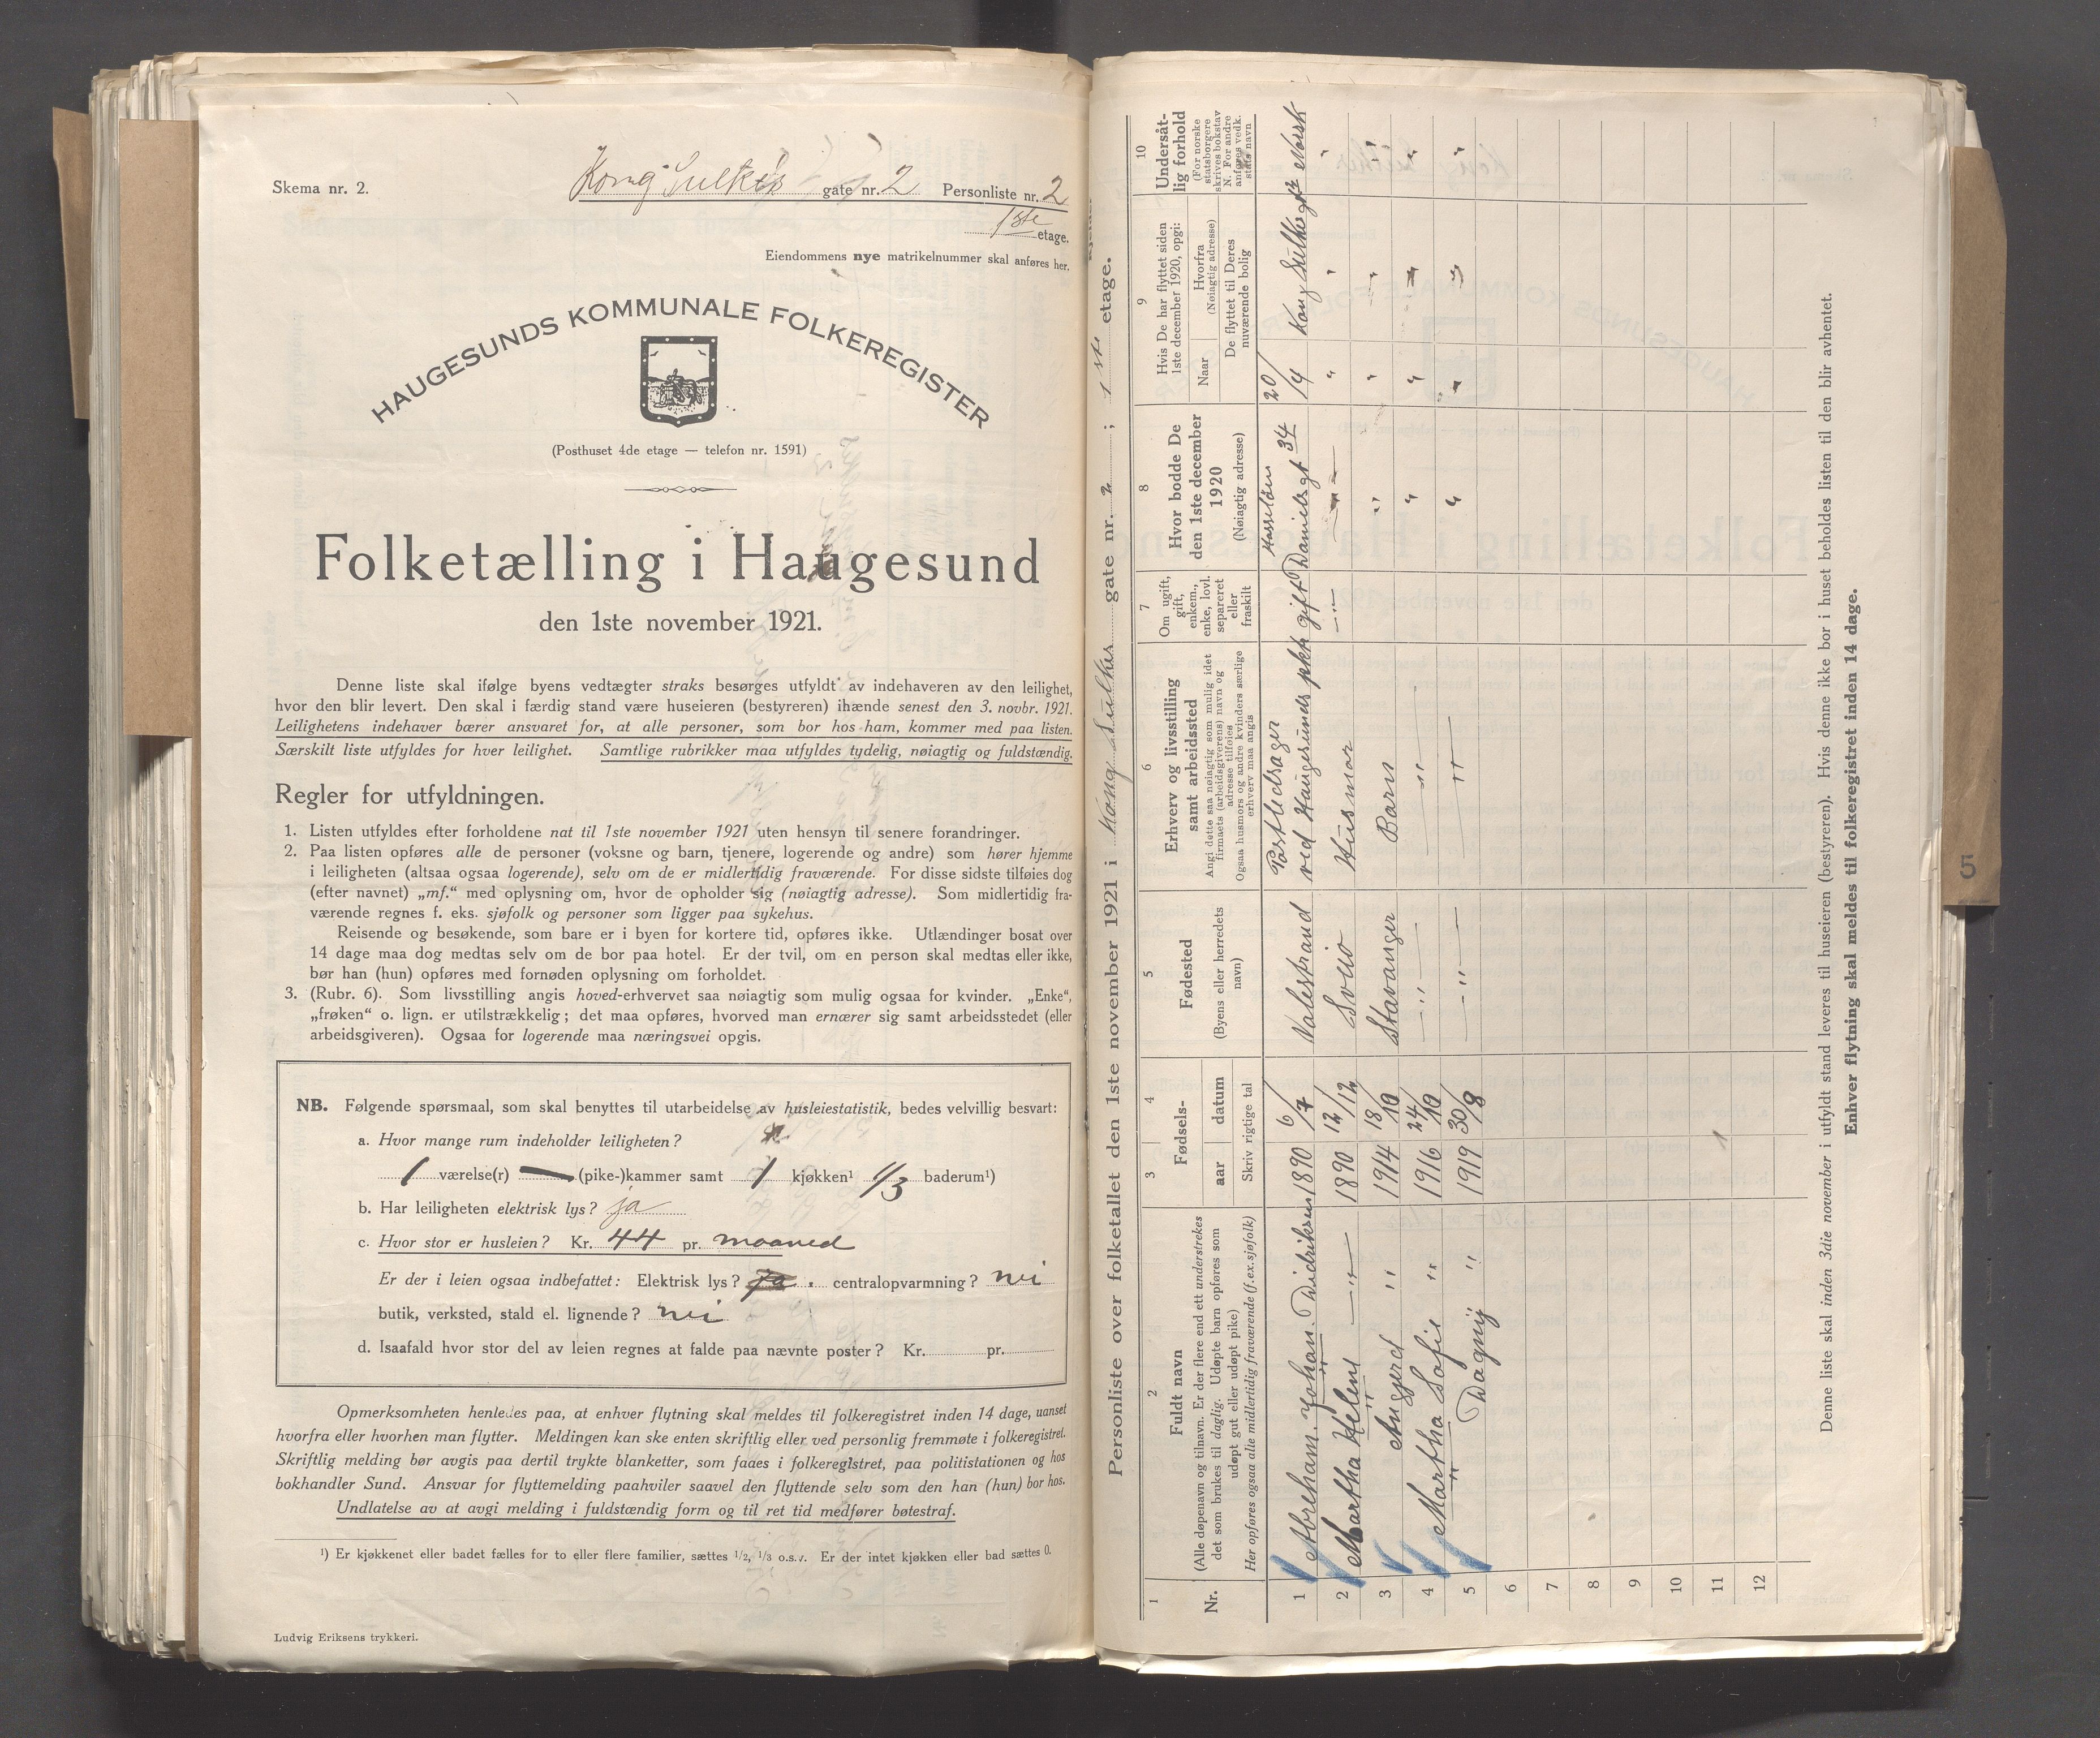 Skema nr. 2.
Kong Sulkes gate nr. 2 Personliste nr. 2
1ste etage.
Eiendommens nye matrikelnummer skal anføres her.
HAUGESUNDS KOMMUNALE FOLKEREGISTER
(Posthuset 4de etage — telefon nr. 1591)
Folketælling i Haugesund
den 1ste november 1921.
Denne liste skal ifølge byens vedtægter straks besørges utfyldt av indehaveren av den leilighet,
hvor den blir levert. Den skal i færdig stand være huseieren (bestyreren) ihænde senest den 3. novbr. 1921.
Leilighetens indehaver bærer ansvaret for, at alle personer, som bor hos ham, kommer med paa listen.
Særskilt liste utfyldes for hver leilighet. Samtlige rubrikker maa utfyldes tydelig, nøiagtig og fuldstændig.
Regler for utfyldningen.
1. Listen utfyldes efter forholdene nat til 1ste november 1921 uten hensyn til senere forandringer.
2. Paa listen opføres alle de personer (voksne og barn, tjenere, logerende og andre) som hører hjemme
i leiligheten (altsaa ogsaa logerende), selv om de er midlertidig fraværende. For disse sidste tilføies dog
(efter navnet) „mf.“ med oplysning om, hvor de opholder sig (nøiagtig adresse). Som midlertidig fra-
værende regnes f. eks. sjøfolk og personer som ligger paa sykehus.
Reisende og besøkende, som bare er i byen for kortere tid, opføres ikke. Utlændinger bosat over
14 dage maa dog medtas selv om de bor paa hotel. Er der tvil, om en person skal medtas eller ikke,
bør han (hun) opføres med fornøden oplysning om forholdet.
3. (Rubr. 6). Som livsstilling angis hoved-erhvervet saa nøiagtig som mulig ogsaa for kvinder. „Enke“,
„frøken“ o. lign. er utilstrækkelig; det maa opføres, hvorved man ernærer sig samt arbeidsstedet (eller
arbeidsgiveren). Ogsaa for logerende maa næringsvei opgis.
NB. Følgende spørsmaal, som skal benyttes til utarbeidelse av husleiestatistik, bedes velvillig besvart:
a. Hvor mange rum indeholder leiligheten?
1 værelse(r) — (pike-)kammer samt 1 kjøkken¹ 1/3 baderum¹)
b. Har leiligheten elektrisk lys? ja
c. Hvor stor er husleien? Kr. 44 pr. maaned
Er der i leien ogsaa indbefattet: Elektrisk lys? ja . centralopvarmning? nei
butik, verksted, stald el. lignende? nei
d. Isaafald hvor stor del av leien regnes at falde paa nævnte poster? Kr. pr.
Opmerksomheten henledes paa, at enhver flytning skal meldes til folkeregistret inden 14 dage, uanset
hvorfra eller hvorhen man flytter. Meldingen kan ske enten skriftlig eller ved personlig fremmøte i folkeregistret.
Skriftlig melding bør avgis paa dertil trykte blanketter, som faaes i folkeregistret, paa politistationen og hos
bokhandler Sund. Ansvar for flyttemelding paahviler saavel den flyttende selv som den han (hun) bor hos.
Undlatelse av at avgi melding i fuldstændig form og til ret tid medfører bøtestraf.
¹) Er kjøkkenet eller badet fælles for to eller flere familier, sættes 1/2, 1/3 o.s.v. Er der intet kjøkken eller bad sættes 0.
Ludvig Eriksens trykkeri.
Personliste over folketallet den 1ste november 1921 i Kong Sulkes gate nr. 2 ; 1ste etage.
1 2 3 4 5 6 7 8 9 10
Nr.
Fuldt navn
(Alle døpenavn og tilnavn. Er der flere end ett understrekes
det som brukes til daglig. Udøpte barn opføres som
udøpt gut eller udøpt pike)
Her opføres ogsaa alle midlertidig fraværende (f. ex. sjøfolk)
Fødsels-
aar datum
Skriv rigtige tal
Fødested
(Byens eller herredets
navn)
Erhverv og livsstilling
samt arbeidssted
Angi dette saa nøiagtig som mulig idet
firmaets (arbeidsgiverens) navn og
adresse tilføies
Ogsaa husmors og andre kvinders særlige
erhverv maa angis
Om ugift,
gift,
enkem.,
enke, lovl.
separeret
eller
fraskilt
Hvor bodde De
den 1ste december
1920
(Nøiagtig adresse)
Hvis De har flyttet siden
1ste december 1920, opgi:
Naar
Hvorfra
(Nøiagtig adresse)
De flyttet til Deres
nuværende bolig
Undersåt-
lig forhold
(For norske
statsborgere
skrives bokstav
N. For andre
anføres vedk.
stats navn
1 Abreham. Johan. Didriksen 1890 6/7 Valestrand Postbedrager ved Haugesunds pktr gift Hasseløen Danielsgt 34 20/4 Kong Sulkesgt Norsk
2 Martha Helene —"— 1890 12/12 Sveio Husmor —"— —"— " " "
3 Angjerd " 1914 18/10 Stavanger Barn " " " "
4 Martha Sofie " 1916 24/10 —"— —"— " " " "
5 Dagny " 1919 30/8 —"— —"— " " " "
6
7
8
9
10
11
12
Denne liste skal inden 3die november i utfyldt stand leveres til huseieren (bestyreren). Hvis denne ikke bor i huset beholdes listen til den blir avhentet.
Enhver flytning skal meldes til folkeregistret inden 14 dage.
5